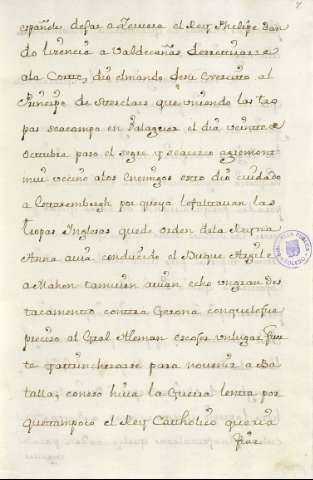 7
españoles de fas a Zervera el Rey Phelipe dan
do lizencia a Valdecañas de retirarse
ala Corte, dio el mando desu Exercito al
Principe de Sterclaes que uniendo las tro
pas se acampo en Balaguer el dia veinte de
octubre paso el segre y se acerco agramont
mui vecino alos Enemigos esto dio cuidado
a Estaremburgh por queya le faltavan las
tropas Ynglesas quede orden dela Reyna
Anna avia conducido el Duque Argile
a Mahon tamvien avian echo un gran des
tacamento contra Gerona, conque lefue
preciso al Gral Aleman escojer un lugar fuer
te y atrincherarse para no venir a Ba
talla; conesto hivia la Guerra lenta por
que tampoco el Rey Catholico queria
fiar